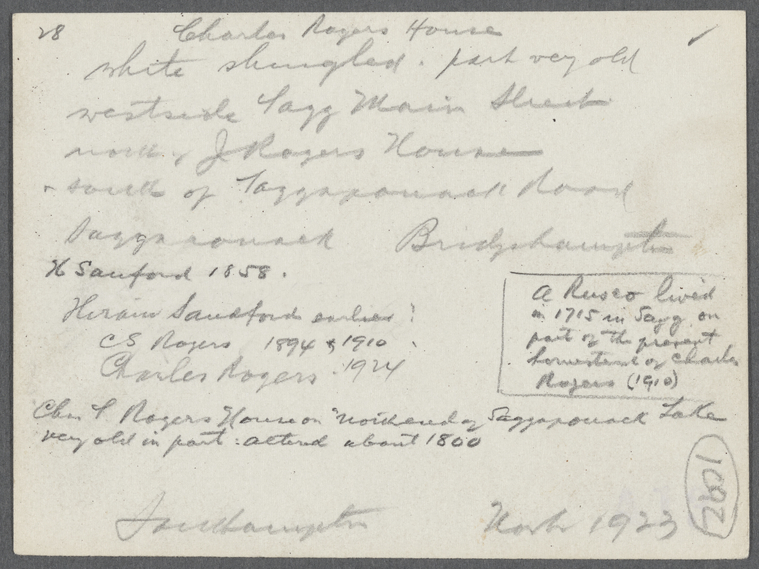 28 Charles Rogers House
white shingled. part very old
westside Sagg Main Street
north of J Rogers House
+ south of Saggaponack Road
Saggaponack Bridgehampton
H Sanford 1858.
Hiram Sandford earlier?
CS Rogers 1894 & 1910
Charles Rogers 1924
A Rusco lived
in 1715 in Sagg on
part of the present
homestead of Charles
Rogers (1910)
Chas Rogers House on "north end of Saggaponack Lake
very old in part: altered about 1800
1092
Southampton 1923